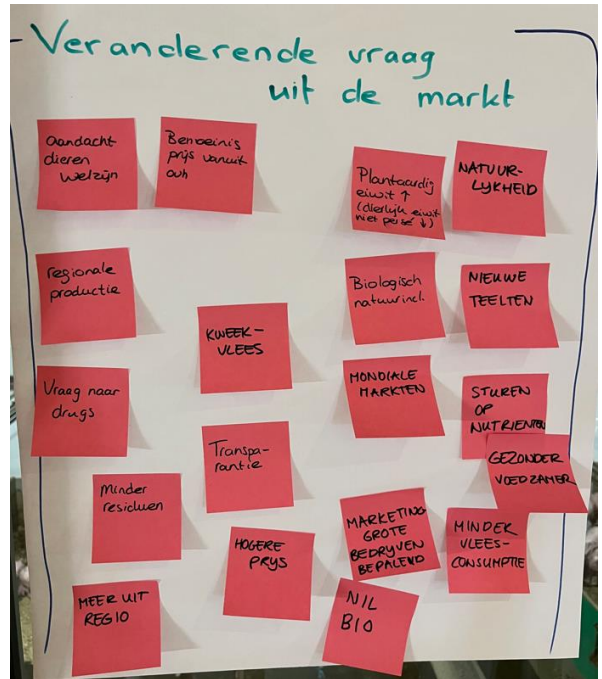 Veranderende vraag
uit de markt
aandacht
dieren
welzijn
Benoeinis
prijs vanuit
ovh
Plantaardig
eiwit ↑
(dierlijk eiwit
niet persé ↓)
NATUUR-
LYKHEID
regionale
productie
Biologisch
natuurincl.
NIEUWE
TEELTEN
KWEEK-
VLEES
Vraag naar
drugs
MONDIALE
MARKTEN
STUREN
OP
NUTRIENTEN
Transpa-
rantie
GEZONDER
VOEDZAMER
Minder
residuen
HOGERE
PRYS
MARKETING
GROTE
BEDRYVEN
BEPALEND
MINDER
VLEES-
CONSUMPTIE
MEER UIT
REGIO
NIL
BIO